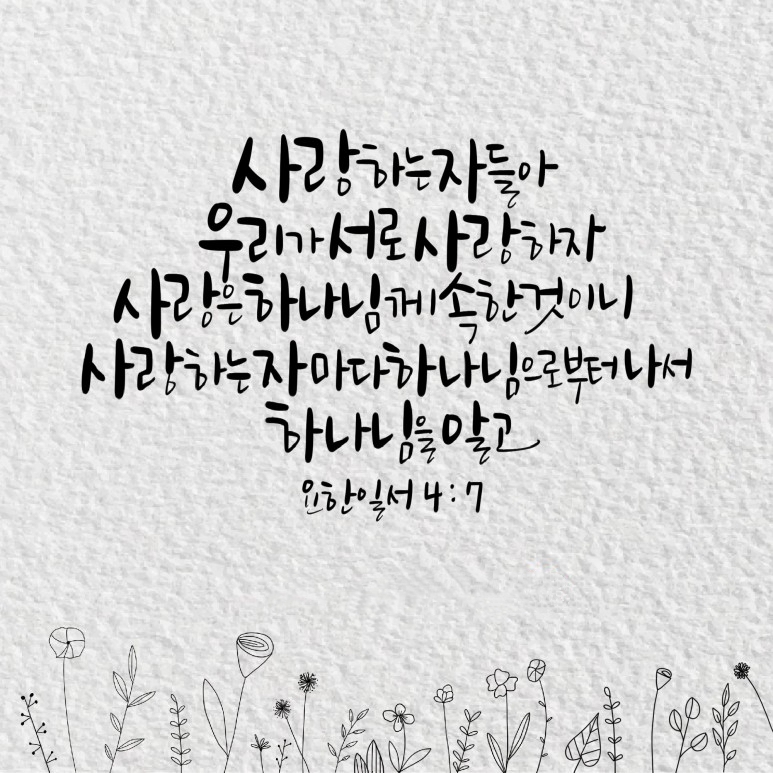 사랑하는 자들아
우리가 서로 사랑하자
사랑은 하나님께 속한 것이니
사랑하는 자마다 하나님으로부터 나서
하나님을 알고
요한일서 4:7